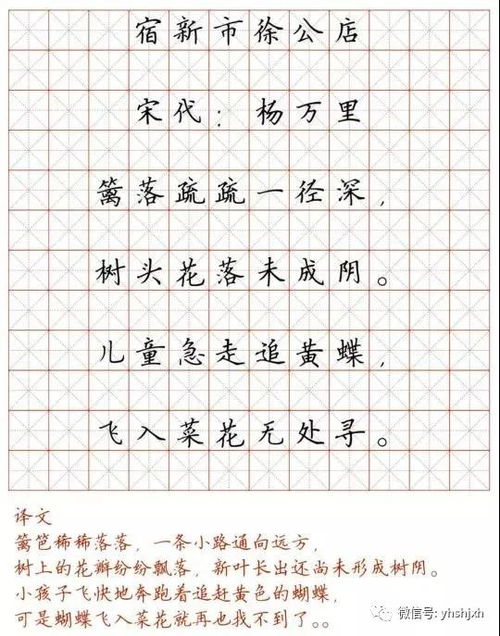 宿新市徐公店
宋代：杨万里
篱落疏疏一径深，
树头花落未成阴。
儿童急走追黄蝶，
飞入菜花无处寻。
译文
篱笆稀稀落落，一条小路通向远方，
树上的花瓣纷纷飘落，新叶长出还尚未形成树阴。
小孩子飞快地奔跑着追赶黄色的蝴蝶，
可是蝴蝶飞入菜花就再也找不到了。。
微信号: yhshjxh